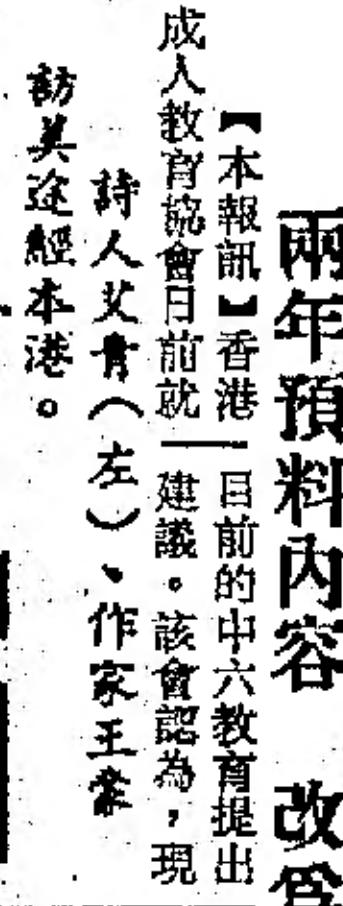 兩年預料內容 改爲
【本報訊】香港
成人教育協會日前就
目前的中六教育提出
建議。該會認為,現
詩人艾青(左)、作家王蒙
訪美途經本港。